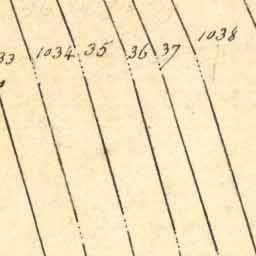 33 1034 35 36 37 1038